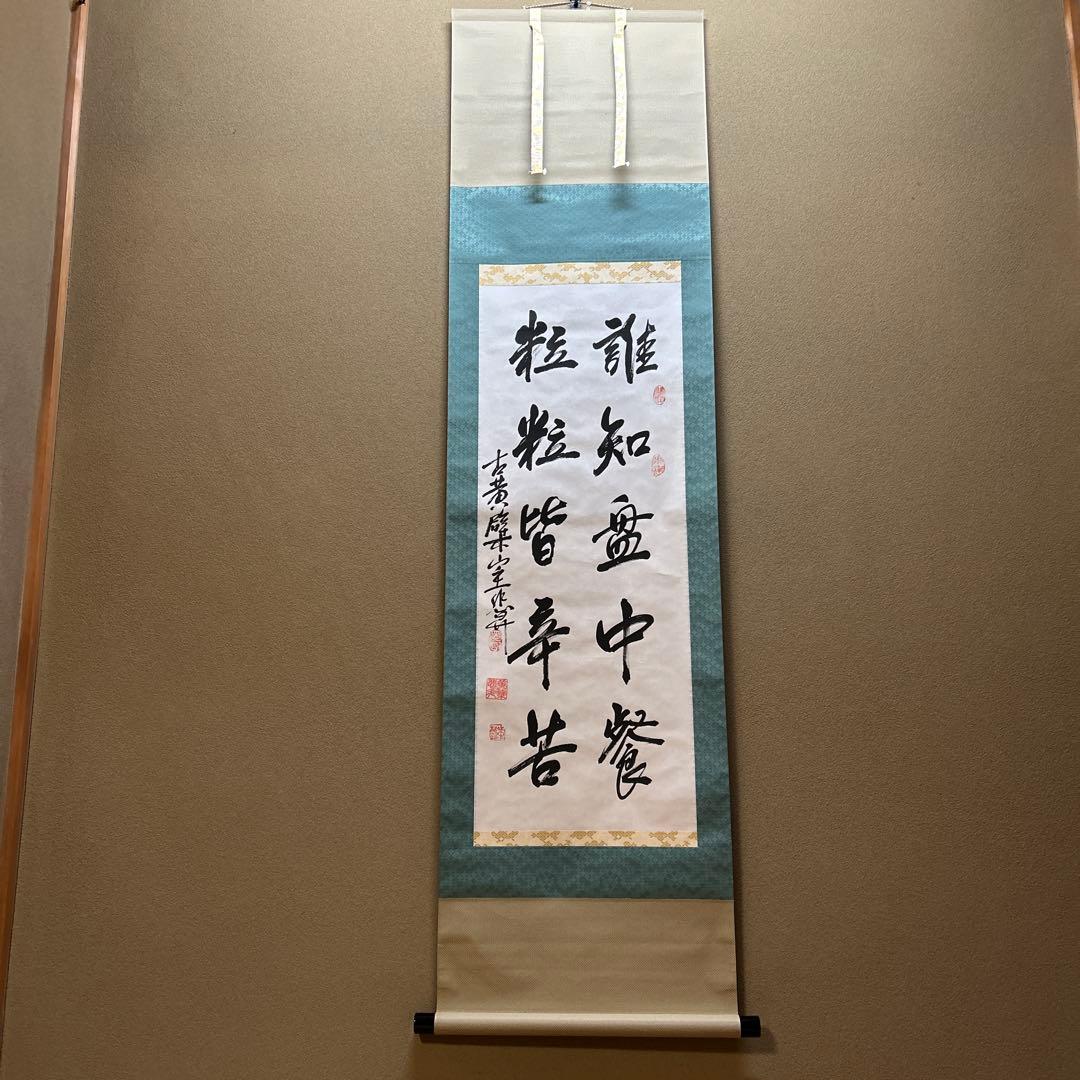 誰知盤中餐
粒粒皆辛苦
古黄檗